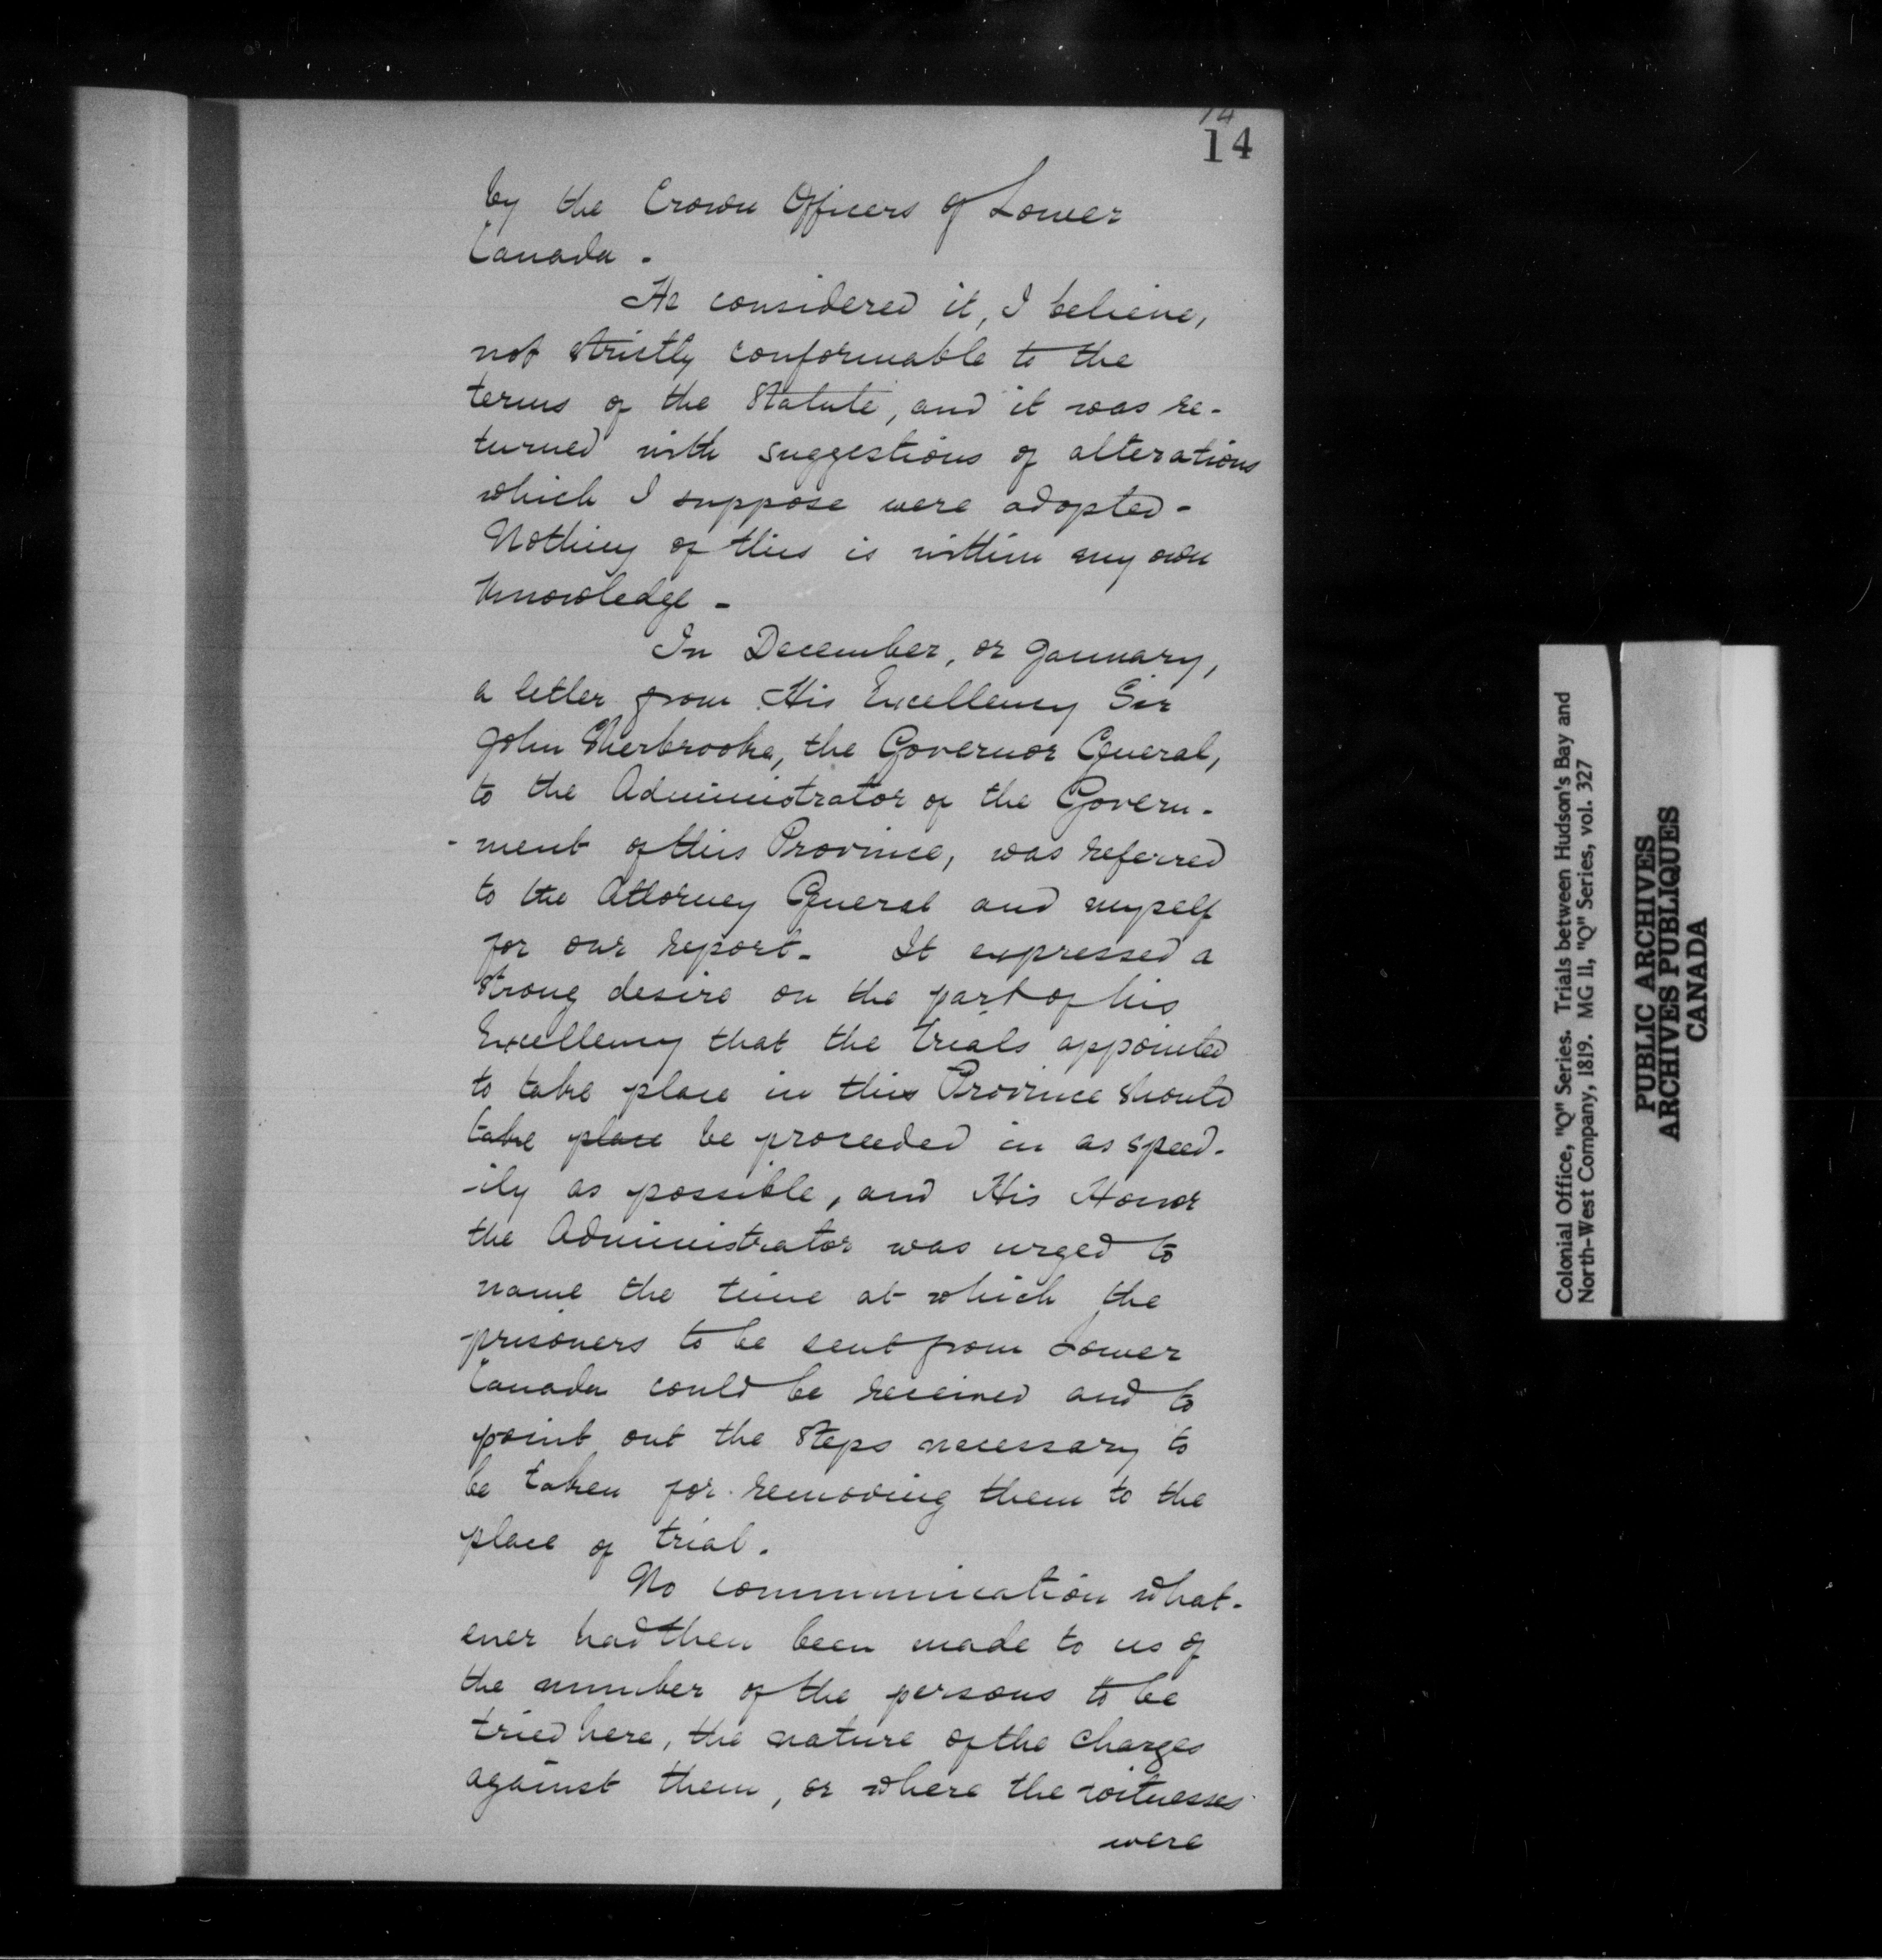 14
14
by the Crown Officers of Lower
Canada.
He considered it, I believe,
not strictly conformable to the
terms of the Statute, and it was re-
turned with suggestions of alterations
which I suppose were adopted-
Nothing of this is within my own
knowledge-
In December, or January,
a letter from His Excellency Sir
John Sherbrooke, the Governor General,
to the Administrator of the Govern-
-ment of this Province, was referred
to the Attorney General and myself
for our report. It expressed a
strong desire on the part of his
Excellency that the trials appointed
to take place in this Province should
take place be proceeded in as speed-
-ily as possible, and His Honor
the Administrator was urged to
name the time at which the
prisoners to be sent from Lower
Canada could be received and to
point out the steps necessary to
be taken for removing them to the
place of trial.
No communication what-
ever had then been made to us of
the number of the persons to be
tried here, the nature of the charges
against them, or where the witnesses
were
Colonial Office, "Q" Series. Trials between Hudson's Bay and
North-West Company, 1819. MG 11, "Q" Series, vol. 327
PUBLIC ARCHIVES
ARCHIVES PUBLIQUES
CANADA